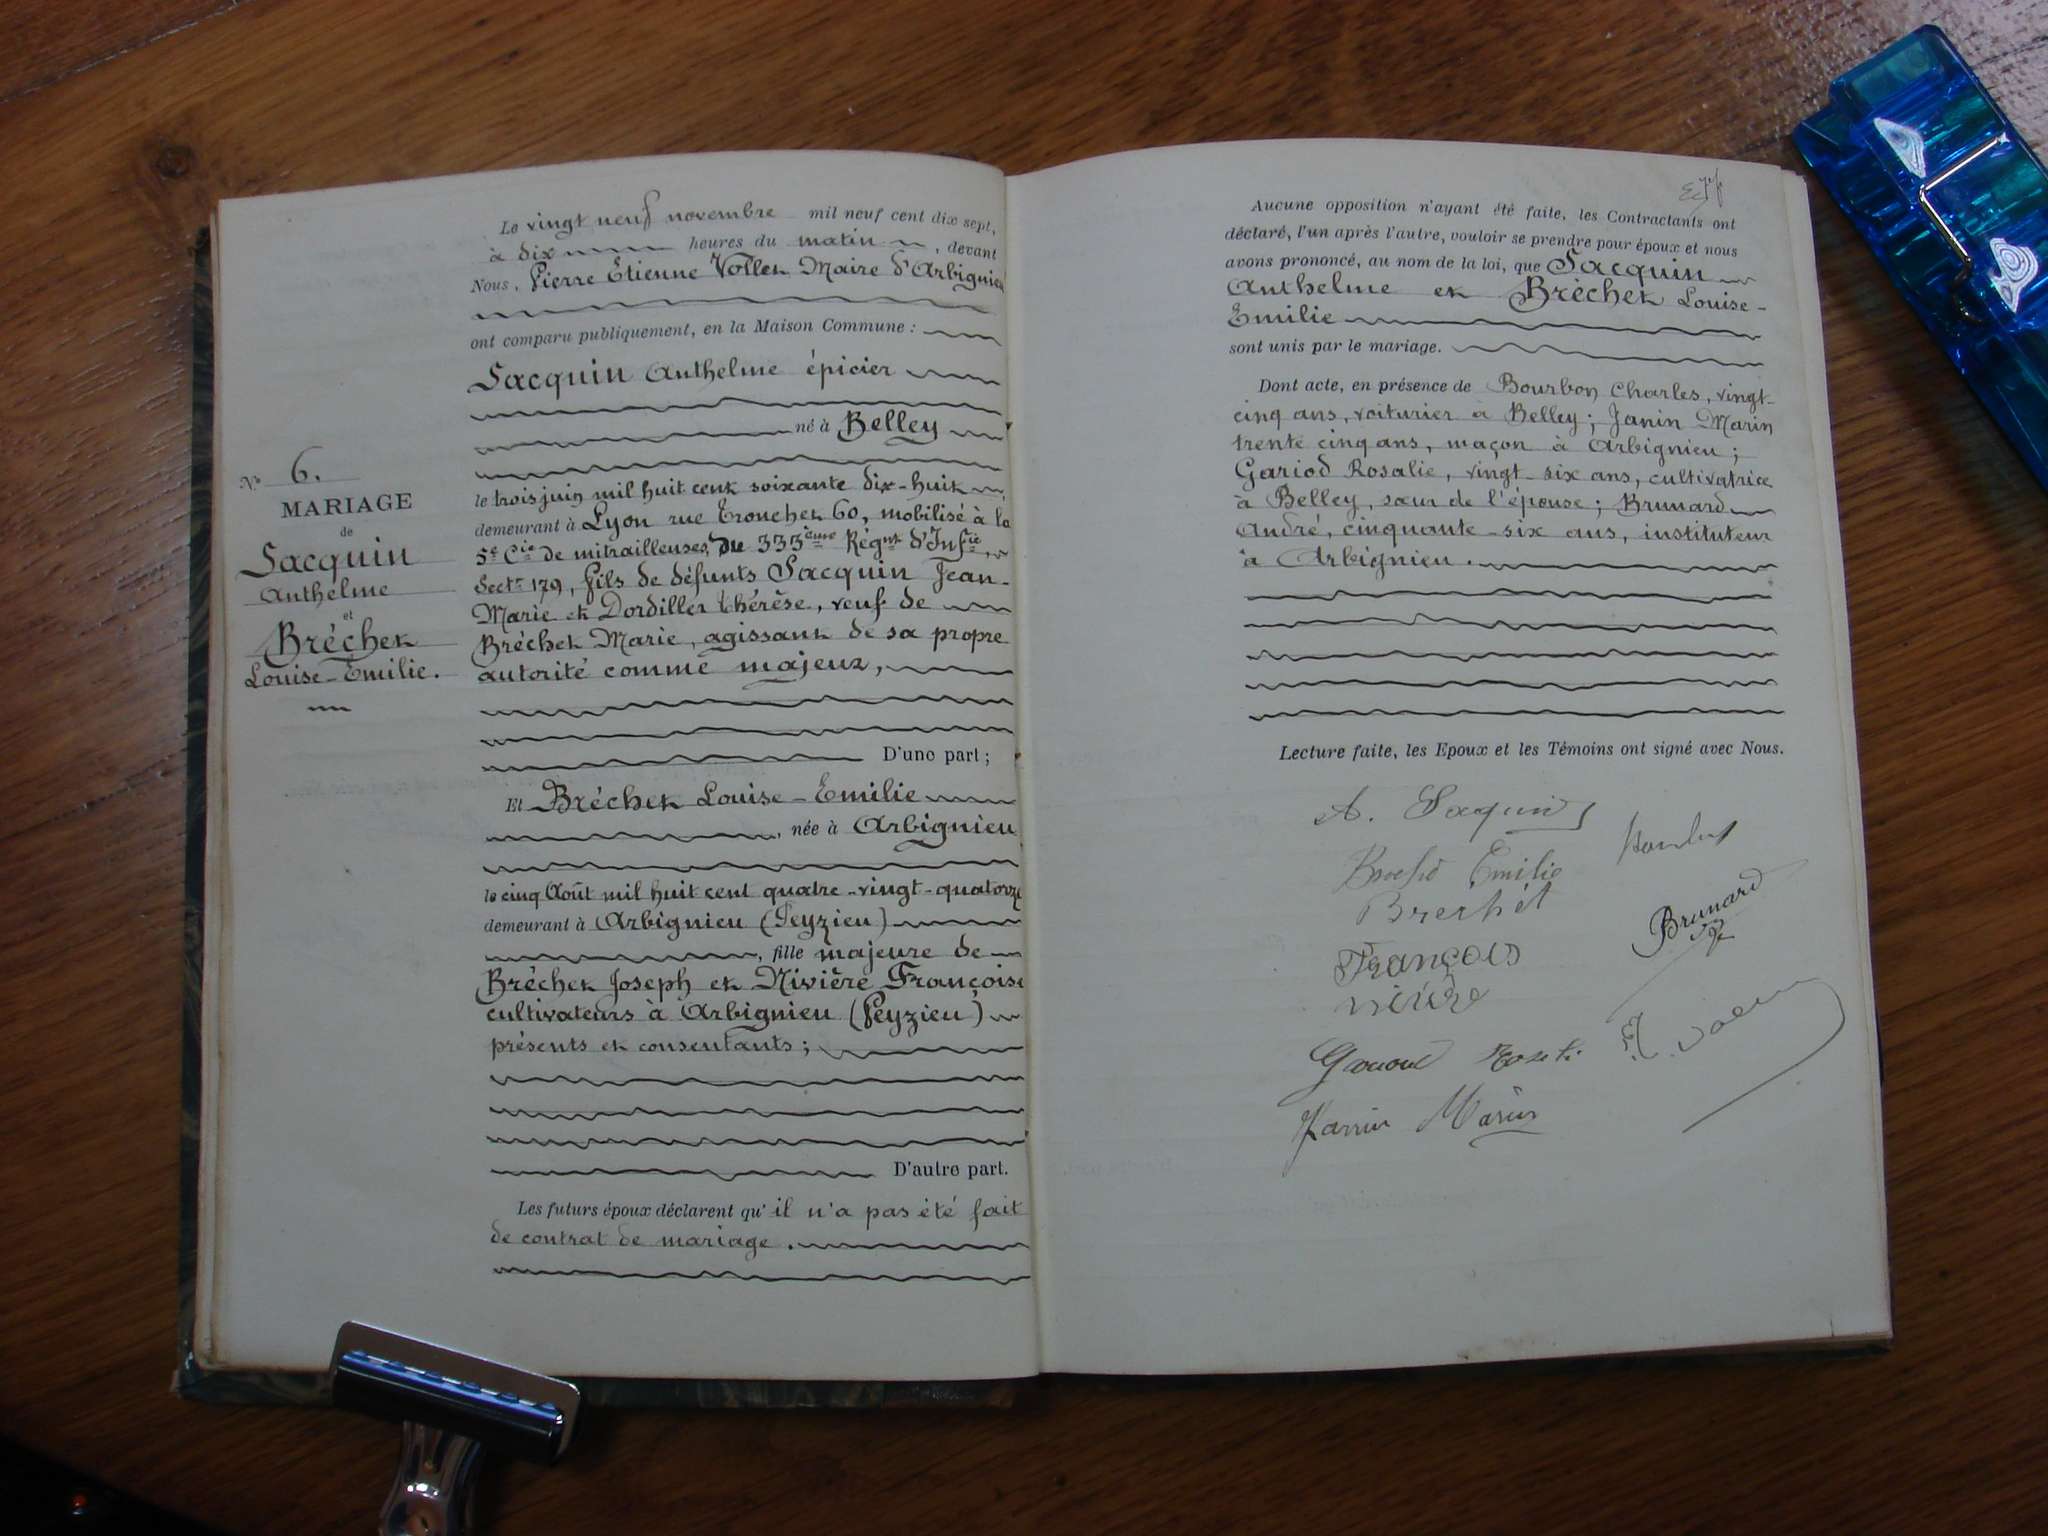 Le vingt neuf novembre mil neuf cent dix sept,
à dix heures du matin, devant
Nous, Pierre Etienne Vollet Maire d'Arbignieu
ont comparu publiquement, en la Maison Commune :
Sacquin Anthelme épicier
né à Belley
le trois juin mil huit cent soixante dix-huit,
demeurant à Lyon rue Tronchet 60, mobilisé à la
5e Cie de mitrailleuses du 333ème Régnt d'Infie,
Sectr 179, fils de défunts Sacquin Jean-
Marie et Dordillet Thérèse, veuf de
Bréchet Marie, agissant de sa propre
autorité comme majeur,
D'une part ;
Et Bréchet Louise-Emilie
, née à Arbignieu
le cinq Août mil huit cent quatre-vingt-quatorze
demeurant à Arbignieu (Peyzieu)
, fille majeure de
Bréchet Joseph et Nivière Françoise
cultivateurs à Arbignieu (Peyzieu)
présents et consentants ;
D'autre part.
Les futurs époux déclarent qu'il n'a pas été fait
de contrat de mariage.
No 6.
MARIAGE
de
Sacquin
Anthelme
et
Bréchet
Louise-Emilie.
Aucune opposition n'ayant été faite, les Contractants ont
déclaré, l'un après l'autre, vouloir se prendre pour époux et nous
avons prononcé, au nom de la loi, que Sacquin
Anthelme et Bréchet Louise-
Emilie
sont unis par le mariage.
Dont acte, en présence de Bourbon Charles, vingt-
cinq ans, voiturier à Belley ; Janin Marin
trente cinq ans, maçon à Arbignieu ;
Gariod Rosalie, vingt-six ans, cultivatrice
à Belley, sœur de l'épouse ; Brunard
André, cinquante-six ans, instituteur
à Arbignieu.
Lecture faite, les Epoux et les Témoins ont signé avec Nous.
A. Sacquin
Emilie
Brechet
François
nivière
Brunard
Janin Marin